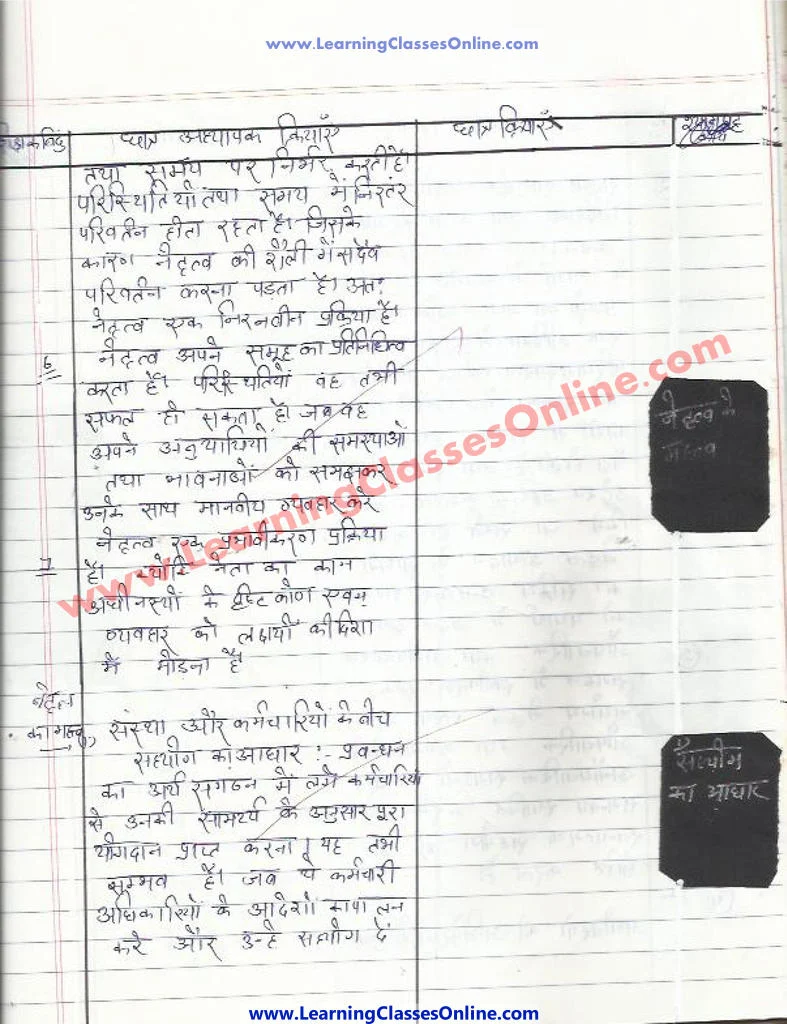 www.LearningClassesOnline.com
छात्र अध्यापक क्रियाएँ
छात्र क्रियाएँ
तथा समय पर निर्भर करती है।
परिस्थितियाँ तथा समय में निरंतर
परिवर्तन होता रहता है। जिसके
कारण नेतृत्व की शैली में सदैव
परिवर्तन करना पड़ता है। अतः
नेतृत्व एक निरन्वीन प्रक्रिया है।
6 नेतृत्व अपने समूह का प्रतिनिधित्व
करता है। परिस्थितियों वह तभी
सफल हो सकता है। जब वह
अपने अनुयायियों की समस्याओं
तथा भावनाओं को समझकर
उनके साथ मानवीय व्यवहार करे
7 नेतृत्व एक प्रभावीकरण प्रक्रिया
है। क्योंकि नेता का काम
अधीनस्थों के दृष्टि कोण एवम्
व्यवहार को लक्ष्यों की दिशा
में मोड़ना है
नेतृत्व
का महत्व (1) संस्था और कर्मचारियों के बीच
सहयोग का आधार :- प्रबन्धन
का अर्थ संगठन में लगे कर्मचारियों
से उनकी सामर्थ्य के अनुसार पूरा
योगदान प्राप्त करना। यह तभी
सम्भव है। जब ये कर्मचारी
अधिकारियों के आदेशों का पालन
करे और उन्हें सहयोग दें
नेतृत्व के
महत्व
सहयोग
का आधार
www.LearningClassesOnline.com
www.LearningClassesOnline.com